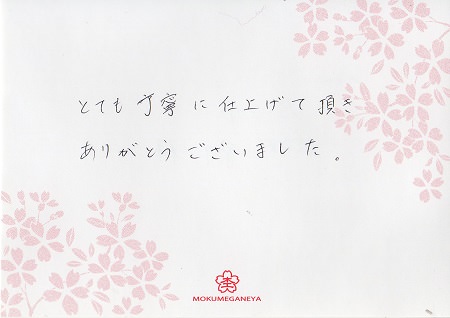 とても丁寧に仕上げて頂き
ありがとうございました。
杢
MOKUMEGANEYA